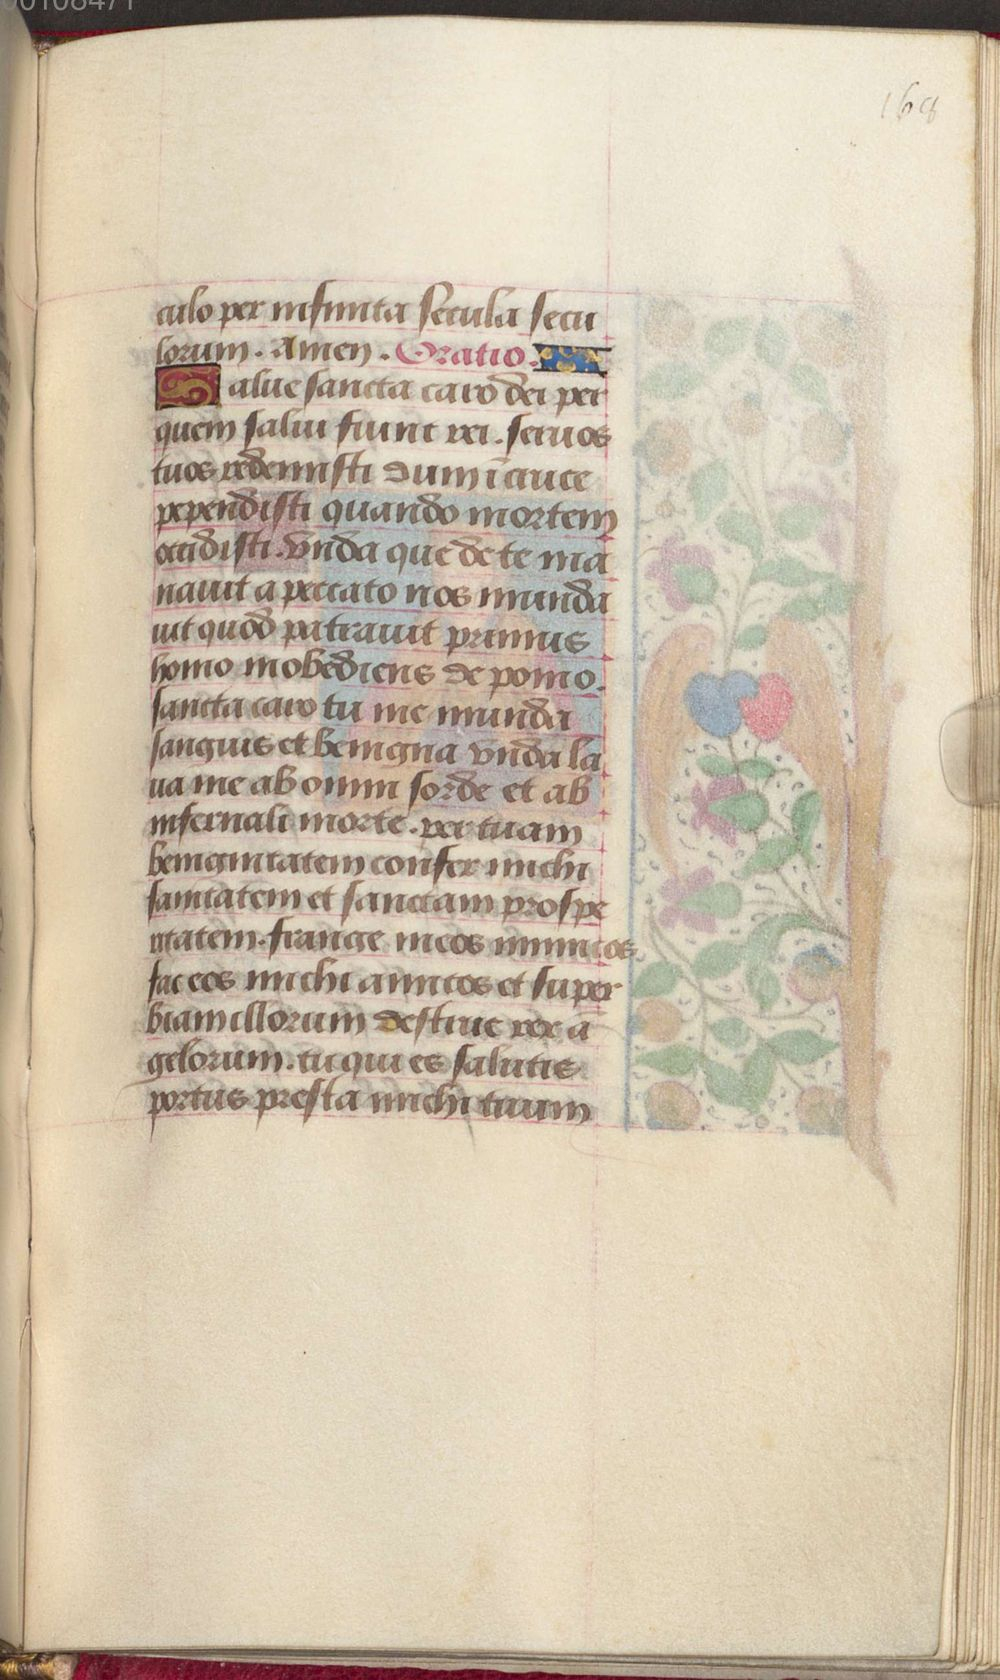 00108471
168
culo per infinita secula secu
lorum. Amen. Oratio.
Salue sancta caro dei per
quem salui fiunt rei. seruos
tuos redemisti dum i cruce
pependisti quando mortem
occidisti. Vnda que de te ma
nauit a peccato nos munda
uit quod patrauit primus
homo inobediens de pomo.
sancta caro tu me munda
sanguis et benigna vnda la
ua me ab omni sorde et ab
infernali morte. per tuam
benignitatem confer michi
sanitatem et sanctam prospe
ritatem. frange meos inimicos
fac eos michi amicos et super
biam illorum destrue rex ā
gelorum. tu qui es salutis
portus presta michi tuum